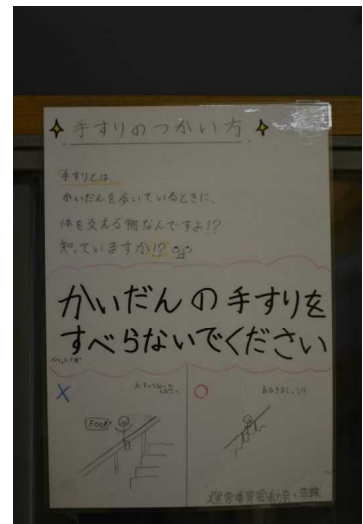 手すりのつかい方
手すりとは…
かいだんを歩いているときに、
体を支える物なんですよ!?
知っていますか!?
かいだんの手すりを
すべらないでください
×
○
あるきましょう!!